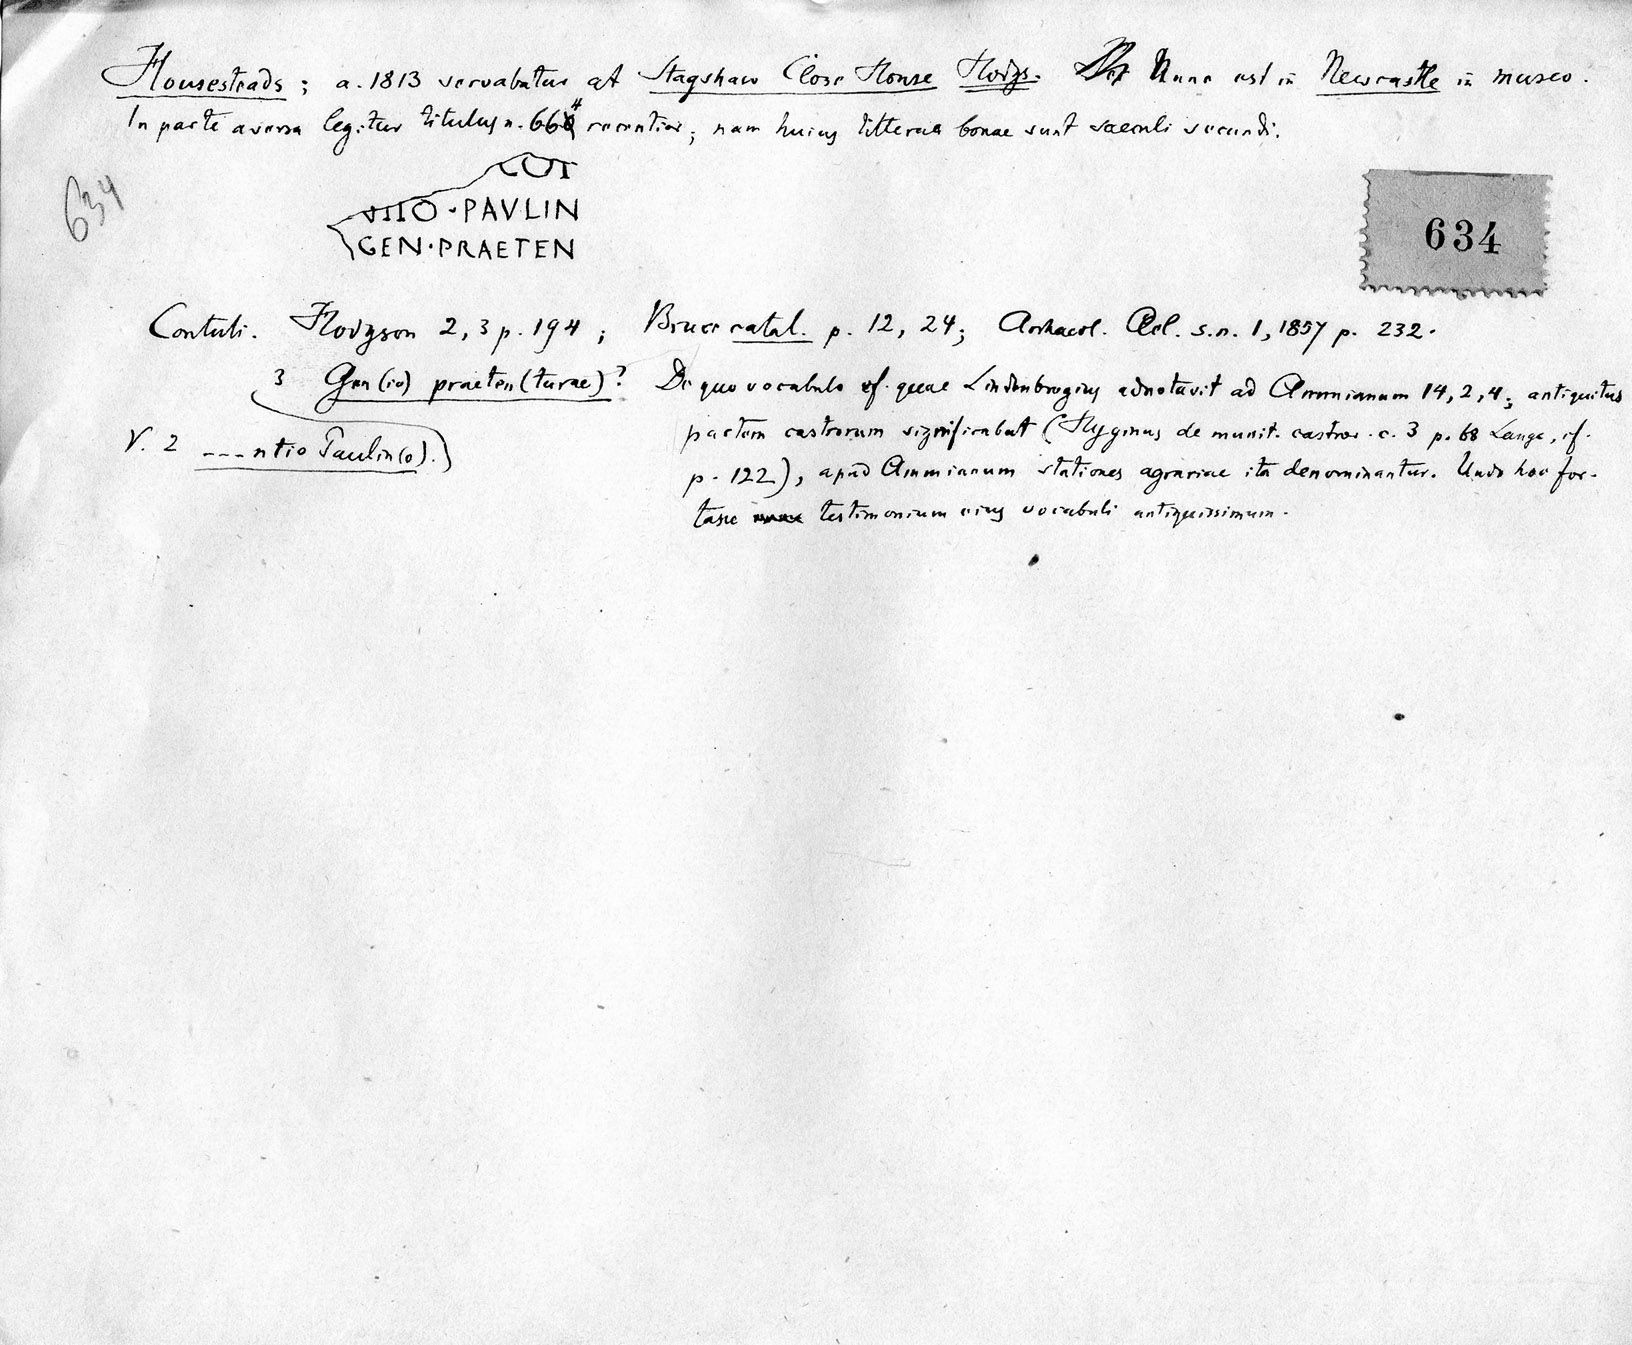 Housesteads; a. 1813 servabatur at Stagshaw Close House Hodgs. Nunc est in Newcastle in museo.
In parte aversa legitur titulus n. 664 recentior; nam huius litterae bonae sunt saeculi secundi.
634
COT
NTIO · PAVLIN
GEN · PRAETEN
634
Contuli. Hodgson 2, 3 p. 194; Bruce catal. p. 12, 24; Archaeol. Ael. s.n. 1, 1857 p. 232.
3 Gen(io) praeten(turae)? De quo vocabulo cf. quae Lindenbrogius adnotavit ad Ammianum 14, 2, 4; antiquitus
partem castrorum significabat (Hyginus de munit. castror. c. 3 p. 68 Lange, cf.
V. 2 ---ntio Paulin(o).)
p. 122), apud Ammianum stationes agrariae ita denominantur. Unde hoc for-
tasse testimonium eius vocabuli antiquissimum.